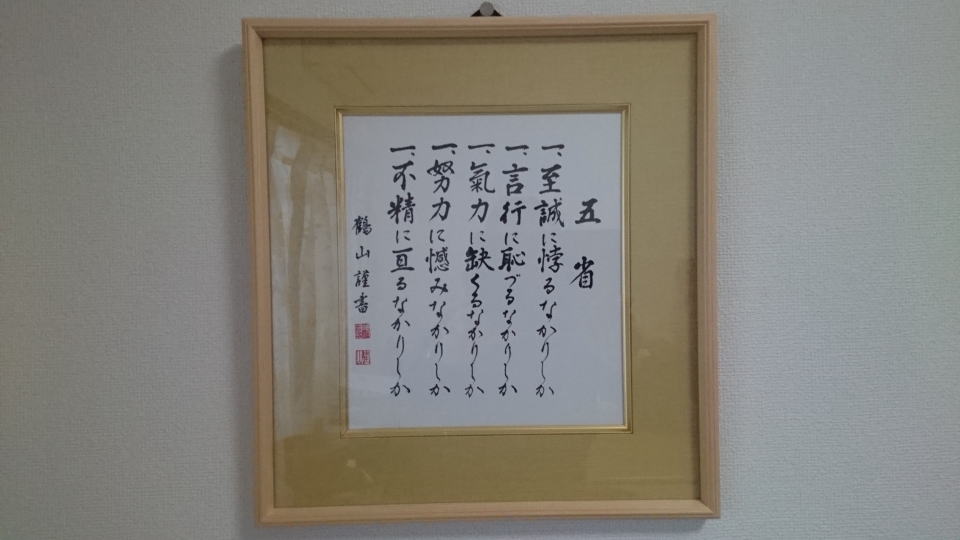 五省
一、至誠に悖るなかりしか
一、言行に恥づるなかりしか
一、氣力に缺くるなかりしか
一、努力に憾みなかりしか
一、不精に亘るなかりしか
鶴山謹書